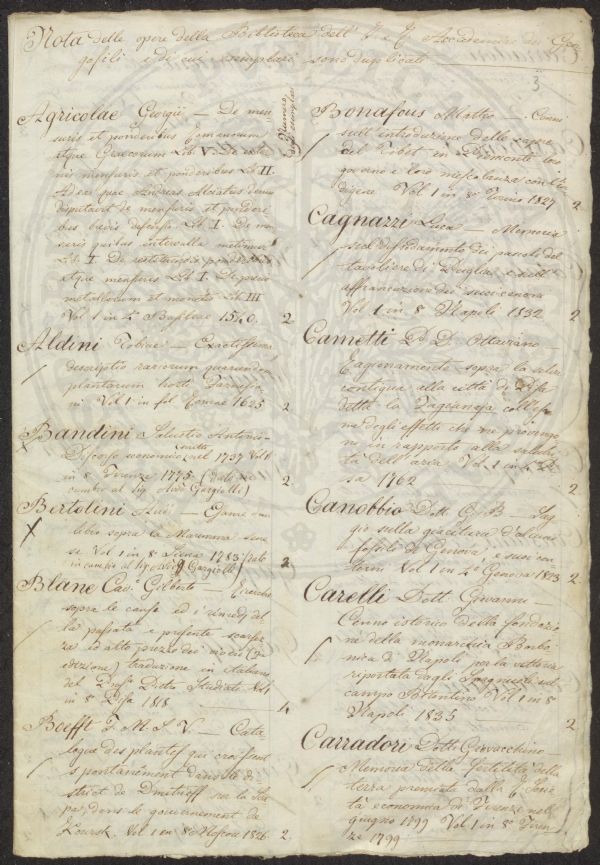 Nota delle opere della Biblioteca dell' I e R Accademia dei Geor
gofili e di cui esemplari sono duplicati
3
Numero
degli esemplari
Agricolae Georgii — De men
suris et ponderibus Romanorum
atque Graecorum Lib V. De exter
nis mensuris et ponderibus Lib II.
Ad ea quae Andreas Alciatus denuo
disputavit de mensuris et ponderi
bus brevis defensio Lib I. De men
suris quibus intervalla metimur
Lib I. De restituendis ponderibus
atque mensuris Lib I. De precio
metallorum et monetis Lib III
Vol 1 in 4° Basileae 1540. 2
Aldini Tobiae — Exactissima
descriptio rariorum quarundam
plantarum horti Farnesia
ni Vol 1 in fol Romae 1625 2
Bandini Salustio Antonio —
Discorso economico scritto nel 1737 Vol 1
in 8° Firenze 1775. (dato in
cambio al Sig Gargiolli) 2
Bertolini — Esame
sopra la Maremma sene
se Vol 1 in 8° Siena 1783 (dato
in cambio al Sig Gargiolli) 2
Blane Cav. Gilberto — Ricerche
sopra le cause ed i rimedj del
la passata e presente scarsez
za ed alto prezzo dei viveri (2
edizione) traduzione in italiano
del Prof Vol 1
in 8° Pisa 1818 4
Boefft F. M. S. V. — Cata
logue des plantes qui croissent
spontanément dans le di
strict de Dmitrieff sur la Sva
pa, dans le gouvernement de
Koursk. Vol 1 en 8° Moscou 1826 2
Bonafous Matteo — Cenni
sull' introduzione delle capre
del Tibet in Piemonte loro
governo e loro miscolanza con l' in
digene Vol 1 in 8° Torino 1827 2
Cagnazzi Luca — Memoria
sul dissodamento dei pascoli del
tavoliere di Puglia e sull'
affrancazione dei suoi canoni
Vol 1 in 8 Napoli 1832 2
Cametti P. D. Ottaviano —
Ragionamento sopra la selva
contigua alla città di Pisa
detta la Tagianaja coll' esa
me degli effetti che ne proven
no in rapporto alla salubri
tà dell' aria Vol 1 in 4 Pi
sa 1762 2
Canobbio Dott. G. B — Sag
gio sulla giacitura d'alcuni
fossili di Genova e suoi con
torni Vol 1 in 4° Genova 1823 2
Carelli Dott. Giovanni —
Cenno istorico della fondazio
ne della monarchia Borbo
nica di Napoli per la vittoria
riportata dagli Spagnuoli sul
campo Bitontino Vol 1 in 8
Napoli 1835 2
Carradori Dott. Giovacchino —
Memoria della fertilità della
terra premiata dalla R. Socie
tà economica di Firenze nel
giugno 1799 Vol 1 in 8° Firen
ze 1799